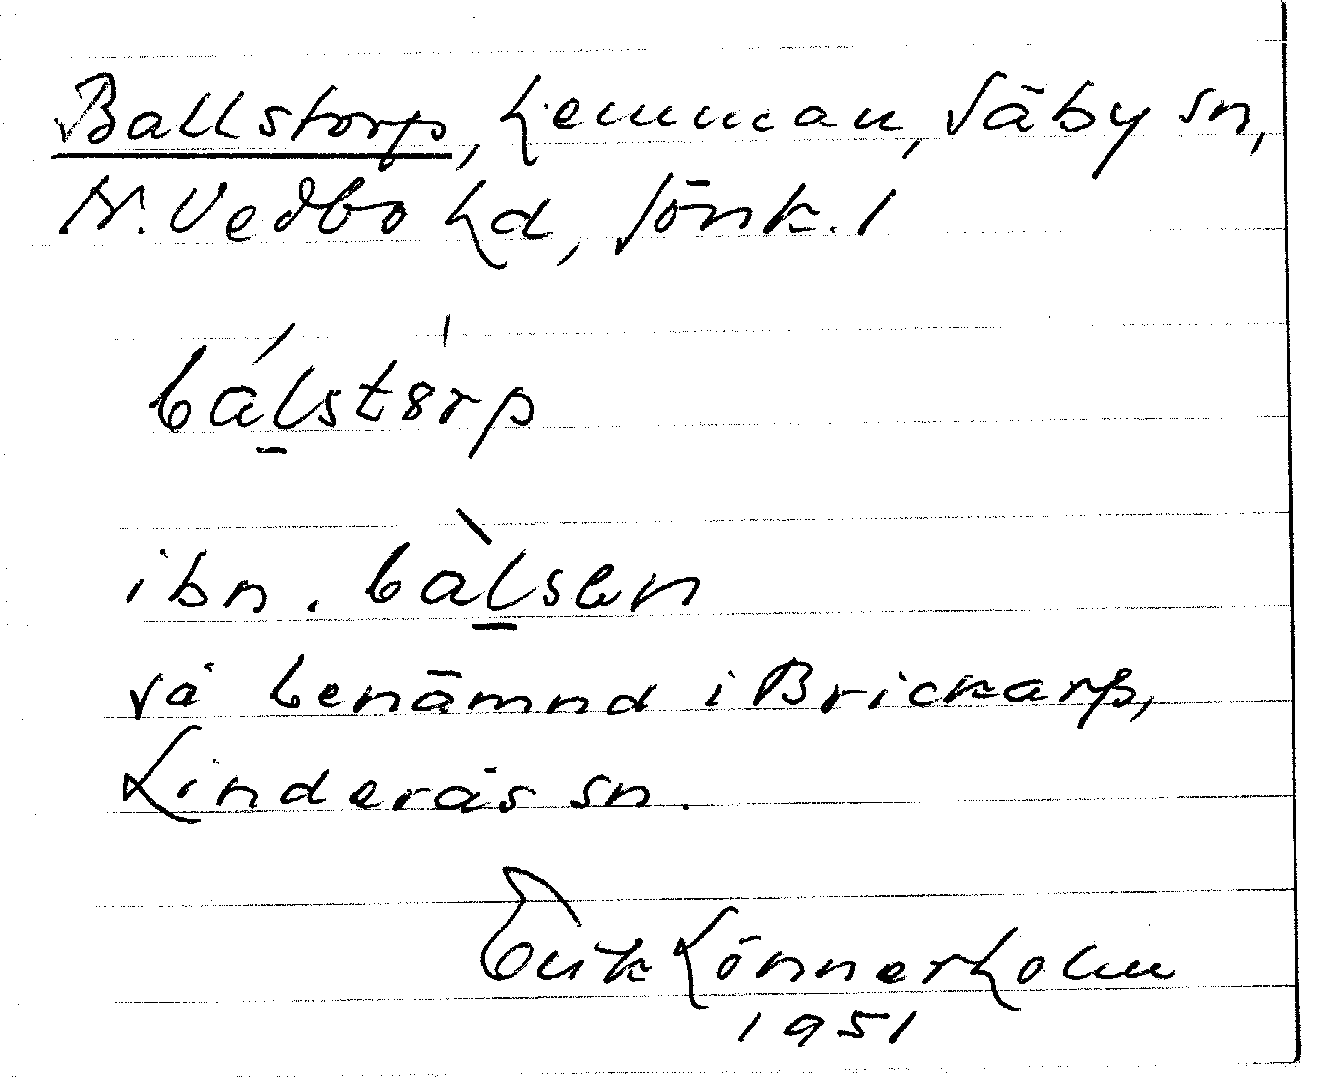 Ballstorp, hemman, Säby sn,
N. Vedbo hd, Jönk. l
bálstórp
ibn. bàlsen
så benämnd i Brickarp,
Linderås sn.
Erik Lönnerholm
1951